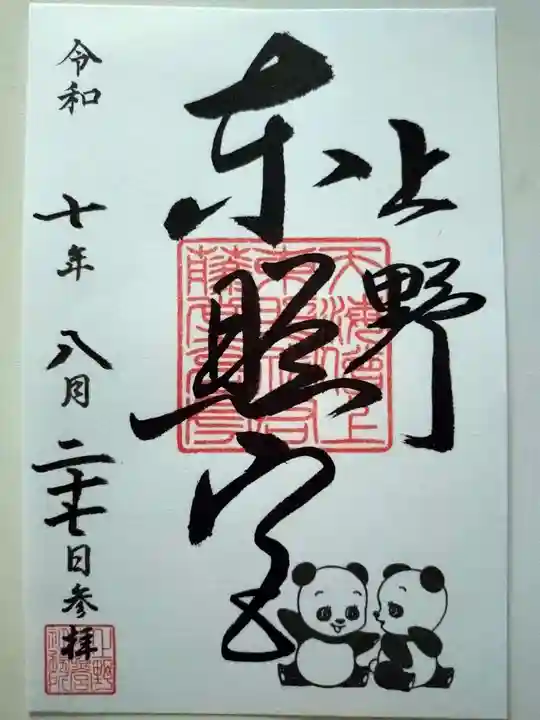 上野
東照宮
令和 七年 八月 二十七日参拝